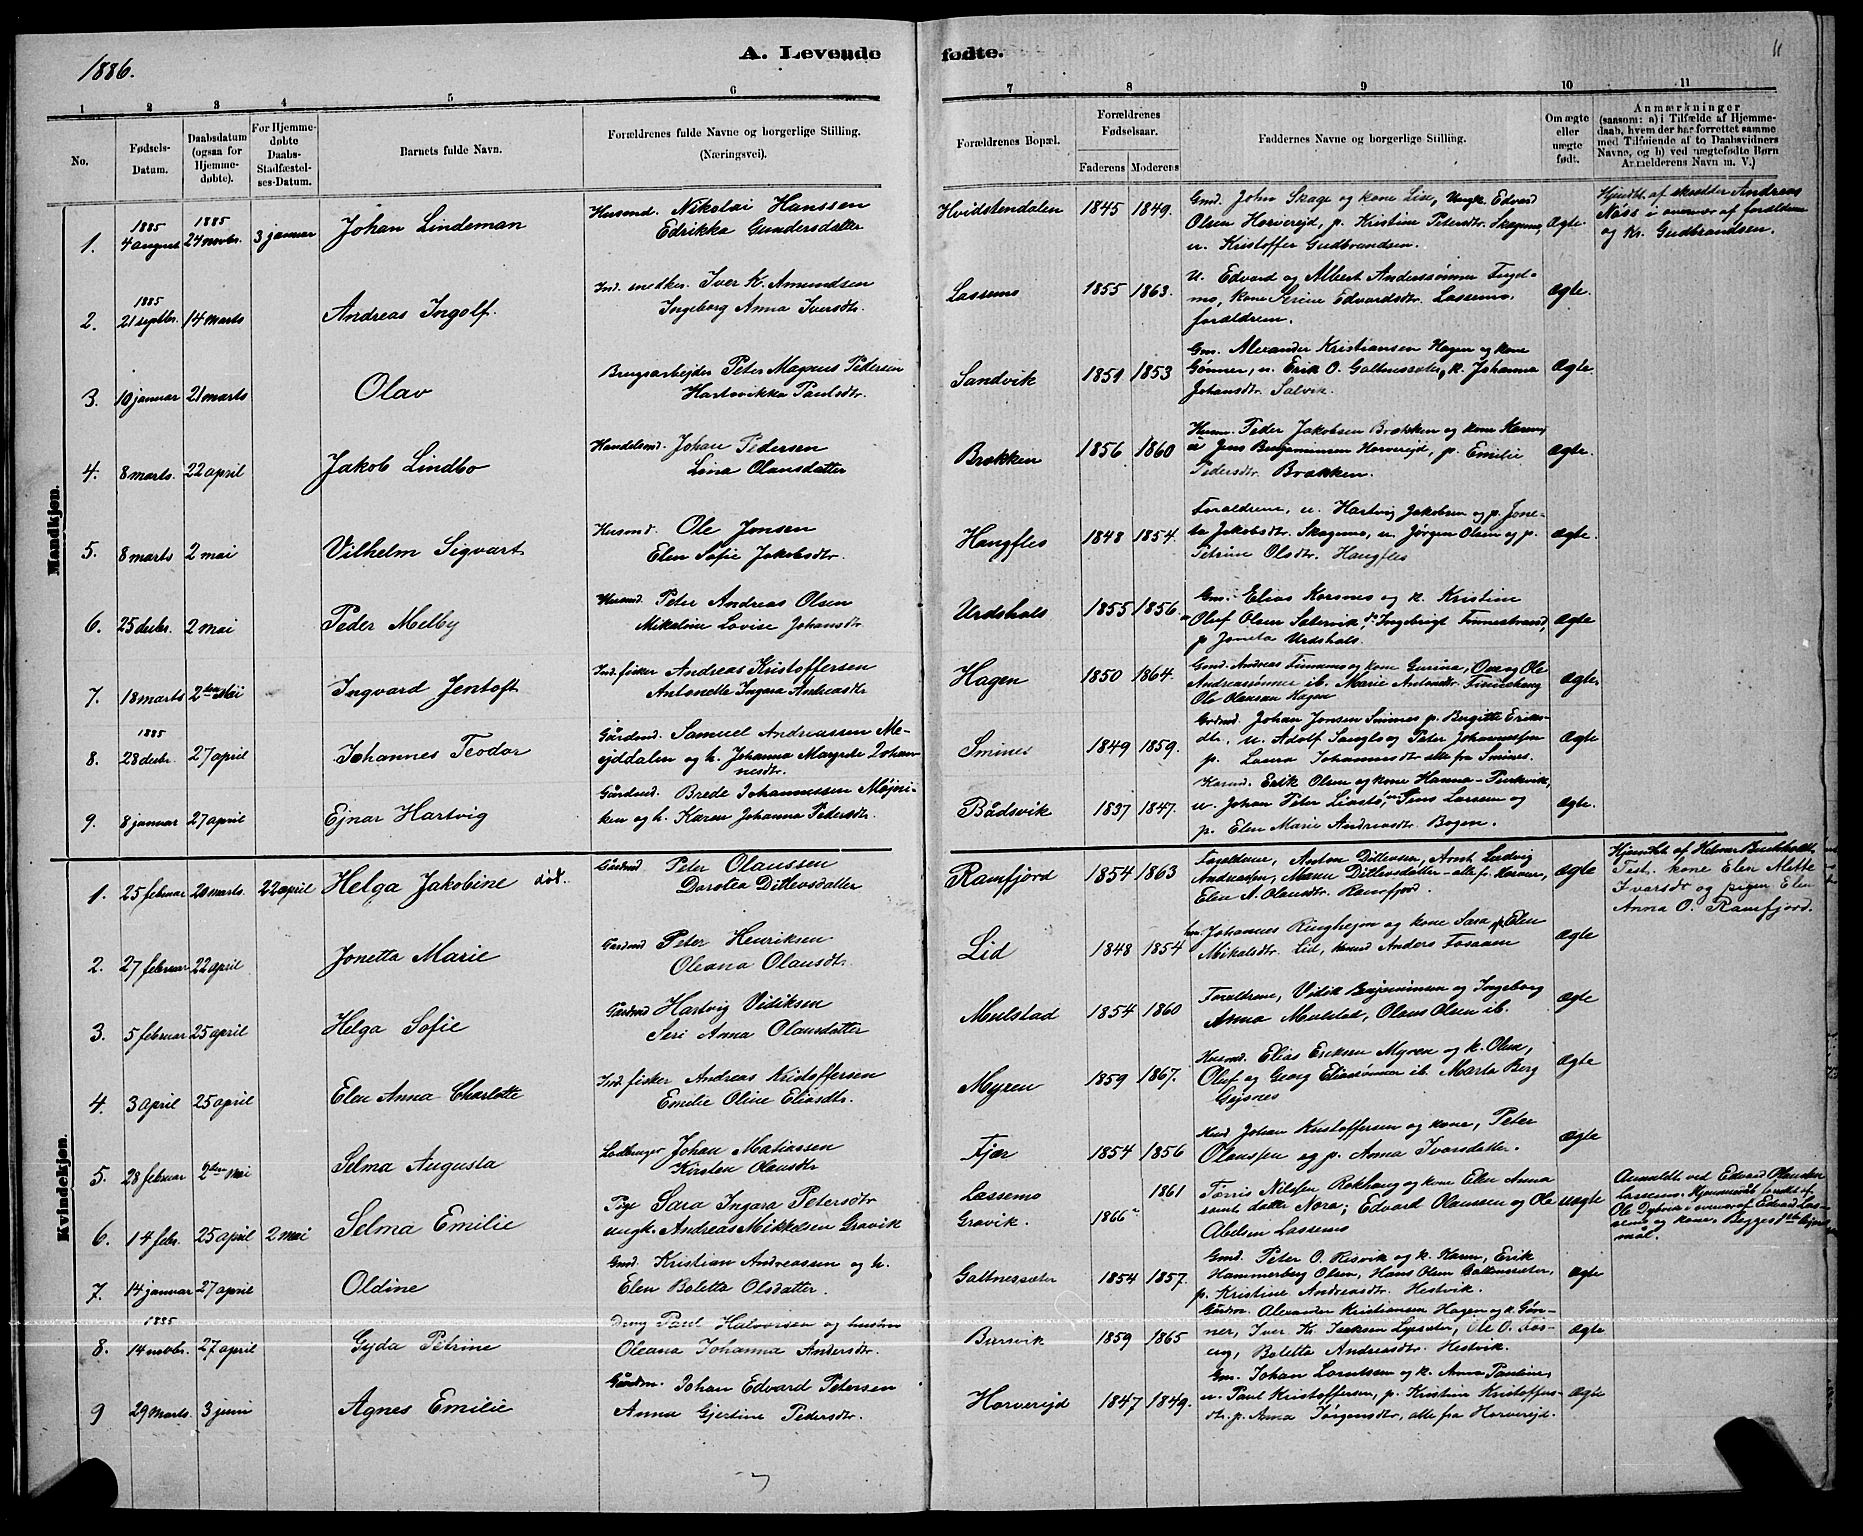 1886.
A. Levende fødte.
11
1 2 3 4 5 6 7 8 9 10 11
No.
Fødsels-Datum.
Daabsdatum (ogsaa for Hjemme-døbte).
For Hjemme-døbte Daabs-Stadfæstel-ses-Datum.
Barnets fulde Navn.
Forældrenes fulde Navne og borgerlige Stilling.
(Næringsvei).
Forældrenes Bopæl.
Forældrenes Fødselsaar.
Faderens Moderens
Faddernes Navne og borgerlige Stilling.
Om ægte eller uægte født.
Anmærkninger
(saasom: a) i Tilfælde af Hjemme-
daab, hvem der har forrettet samme
med Tilføiende af to Daabsvidners
Navne, og b) ved uægtefødte Børn
Anmelderens Navn m. V.)
Mandkjøn.
1. 1885 4 august 1885 24 novbr. 3 januar Johan Lindeman
Husmd. Nikolai Hanssen
Edrikka Gundersdatter
Hvidstendalen 1845 1849.
Gmd. John Skage og kone Lise, Ungk. Edvard
Olsen Horverejd, p. Kristine Petersdtr. Skagemo,
u. Kristoffer Gudbrandsen.
Ægte
Hjemdbt. af skrædder Andreas
Näss i overvær af forældrene
og Kr. Gudbrandsen.
2. 1885 21 septbr. 14 marts Andreas Ingolf.
Ind. snedker. Iver K. Amundsen
Ingeborg Anna Iversdtr.
Lassemo 1855 1863.
U. Edvard og Albert Anderssønner
mo, kone Serine Edvardsdtr. Lassemo,
forældrene.
Ægte.
3. 10 januar 21 marts Olav
Brugsarbejder Peter Magnus Pedersen
Hartvikka Paulsdtr.
Sandvik 1851 1853
Gm. Alexander Kristiansen Hagen og kone
Gønner, u. Erik O. Galtnessæter, k. Johanna
Johansdtr. Salvik.
Ægte.
4. 8 marts. 22 april Jakob Lindbo
Handelsmd. Johan Pedersen
Lina Olausdatter
Brækken 1856 1860
Husm. Peder Jakobsen Brækken og kone Karen,
u. Jens Benjaminsen Horverejd, p. Emilie
Pedersdtr. Brækken.
Ægte.
5. 8 marts 2 mai Vilhelm Sigvart
Husmd. Ole Jonsen
Elen Sofie Jakobsdtr.
Haugfles 1848 1854.
Forældrene, u. Hartvig Jakobsen og p. Jone-
ta Jakobsdtr. Skagemo, u. Jørgen Olsen og p.
Petrine Olsdtr. Haugfles
Ægte.
6. 25 decbr. 2 mai Peder Melby
Husmd Peter Andreas Olsen
Mikaline Lovise Johansdtr.
Urdshals 1855 1856.
Gm. Elias Korsnes og k. Kristine
Oluf Olsen Sætervik, Ingebrigt Finnestrand,
p Joneta Urdshals.
Ægte
7. 18 marts 2den Mai Ingvard Jentoft
Ind. fisker Andreas Kristoffersen
Antonette Ingara Andreasdtr.
Hagen 1850 1864.
Gmd. Andreas Finnemo og kone Gurina, Ove og Ole
Andreassønner ib. Marie Antonsdtr.
Ole Olausen Hagen
Ægte
8. 1885 28 decbr. 27 april Johannes Teodor
Gårdmd. Samuel Andreassen Me-
ejddalen og h. Johanna Margrete Johan-
nesdtr.
Smines 1849 1859.
Grdmd. Johan Jonsen Smines p. Birgitte Eriks-
dtr., u. Adolf og Peter Johannessen
p. Laura Johannesdtr alle fra Smines.
Ægte
9. 8 januar 27 april Ejnar Hartvig
Gårdmd. Brede Johannessen Møjni-
ken og h. Karen Johanna Pedersdtr.
Bådsvik 1837 1847.
Erik Olsen og kone Hanna
u. Johan Peter Liastø, Jens Larsen og
p. Elen Marie Andreasdtr. Bogen.
Ægte.
Kvindekjøn.
1. 25 februar 20 marts. 22 april Helga Jakobine død.
Gårdmd Peter Olaussen
Dorotea Ditlevsdatter
Ramfjord 1854 1863
Forældrene, Anton Ditlevsen, Arnt Ludvig
Andreassen, Maren Ditlevsdatter – alle fr.
Elen A. Olausdtr. Ramfjord.
Ægte
Hjemdbt. af Helmer Buchholdt,
Test. kone Elen Mette
Ivarsdr og pigen Elen
Anna O. Ramfjord.
2. 27 februar 22 april Jonetta Marie
Gårdmd Peter Henriksen
Oleana Olausdtr.
Lid 1848 1854
Johannes Ringhejm og kone Sara, p. Elen
Mikalsdtr. Lid, Anders Fosaaen
Ægte
3. 5 februar 25 april Helga Sofie
Gårdmd Hartvig Vidiksen
Seri Anna Olausdatter
Mulstad 1854 1860
Forældrene, Vidik Benjaminsen og Ingeborg
Anna Mulstad, Olaus Olsen ib.
Ægte
4. 3 april 25 april Elen Anna Charlotte
Ind. fisker Andreas Kristoffersen
Emelie Oline Eliasdtr.
Myren 1859 1867.
Husmd. Elias Eriksen Myren og k. Oline,
Oluf og Georg Eliassønner ib. Marta Berg
Gejsnes
Ægte
5. 28 februar 2den mai Selma Augusta
Johan Matiassen
Kirsten Olausdtr
Fjær 1854 1856
Johan Kristoffersen og kone, Peter
Olaussen og p. Anna Ivarsdatter.
Ægte
6. 14 febr. 25 april 2 mai Selma Emilie
Pige Sara Ingara Petersdtr
ungk. Andreas Mikkelsen Gravik
Lassemo 1861
Gravik. 1866
Tørris Nilssen Rokhaug og kone Elen Anna
samt datter Nora; Edvard Olaussen og Ole
Abelsen Lassemo
uægte
Anmeldt ved Edvard Olaussen
Lassemo. Hjemmedøbt af
Ole i overvær af Edvard Las-
semo og kone. Begges 1ste lejer-
mål.
7. 14 januar 27 april Oldine
Gmd. Kristian Andreassen og h.
Elen Boletta Olsdatter.
Galtnessæter 1854 1857.
Gmd. Peter O. Risvik og k. Karen, Erik
Hammerberg Olsen, Hans Olsen Galtnessæter,
p. Kristine Andreasdtr. Hestvik.
Ægte
8. 1885 14 novbr. 27 april Gejda Petrine
Paul Halvorsen og hustru
Oleana Johanna Andersdtr.
Bursvik 1859 1865
Gårdm. Alexander Kristiansen Hagen og k. Gøn-
ner, Iver Kr. Isaksen Ole O.
Boletta Andreasdtr. Hestvik.
Ægte
9 29 marts. 3 juni Agnes Emilie
Gårdm. Johan Edvard Petersen
Anna Gjertine Pedersdtr.
Horverejd 1847 1849.
Gm. Johan Lorntssen og k. Anna Pauline,
u. Paul Kristoffersen, p. Kristin Kristoffers-
dtr. p. Anna Jörgensdtr., alle fra Horverejd.
Ægte